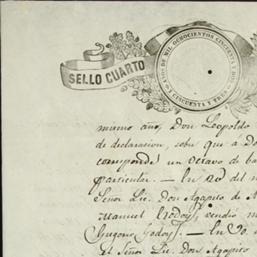 SELLO CUARTO
AÑO DE MIL OCHOCIENTOS CINCUENTA Y DOS
CINCUENTA Y TRES
mismo año, Don Leopoldo
de declaracion, sobre que a D
corresponde un octavo de ba
particular. — En 20 del m
Señor Lic. Don Agapito de
Manuel Godoy, vendió
Godoy. — En 20.
el Señor Lic. Don Agapito